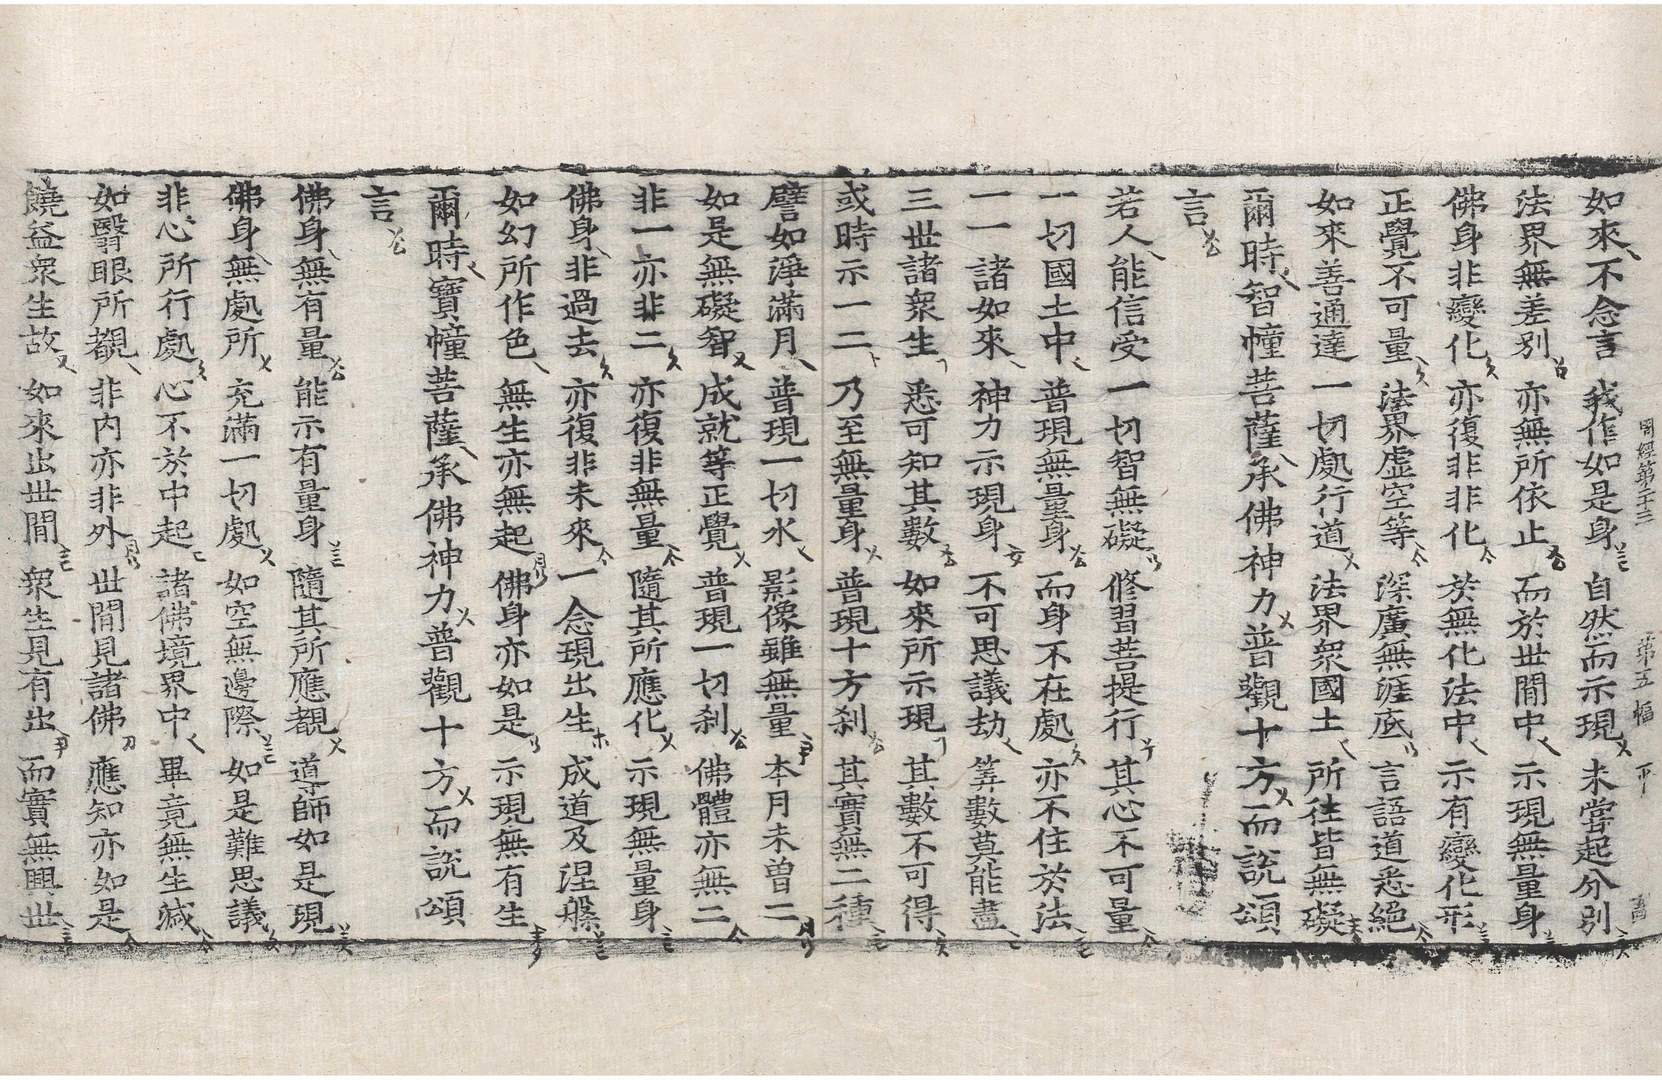 周經第二十三 第五幅 下
如來不念言 我作如是身 自然而示現 未嘗起分別
法界無差別 亦無所依止 而於世間中 示現無量身
佛身非變化 亦復非非化 於無化法中 示有變化形
正覺不可量 法界虛空等 深廣無涯底 言語道悉絕
如來善通達 一切處行道 法界衆國土 所往皆無礙
爾時智幢菩薩承佛神力普觀十方而說頌
言
若人能信受 一切智無礙 修習菩提行 其心不可量
一切國土中 普現無量身 而身不在處 亦不住於法
一一諸如來 神力示現身 不可思議劫 筭數莫能盡
三世諸衆生 悉可知其數 如來所示現 其數不可得
或時示一二 乃至無量身 普現十方刹 其實無二種
譬如淨滿月 普現一切水 影像雖無量 本月未曽二
如是無礙智 成就等正覺 普現一切刹 佛體亦無二
非一亦非二 亦復非無量 隨其所應化 示現無量身
佛身非過去 亦復非未來 一念現出生 成道及涅槃
如幻所作色 無生亦無起 佛身亦如是 示現無有生
爾時寶幢菩薩承佛神力普觀十方而說頌
言
佛身無有量 能示有量身 隨其所應覩 導師如是現
佛身無處所 充滿一切處 如空無邊際 如是難思議
非心所行處 心不於中起 諸佛境界中 畢竟無生滅
如翳眼所覩 非內亦非外 世間見諸佛 應知亦如是
饒益衆生故 如來出世間 衆生見有出 而實無興世